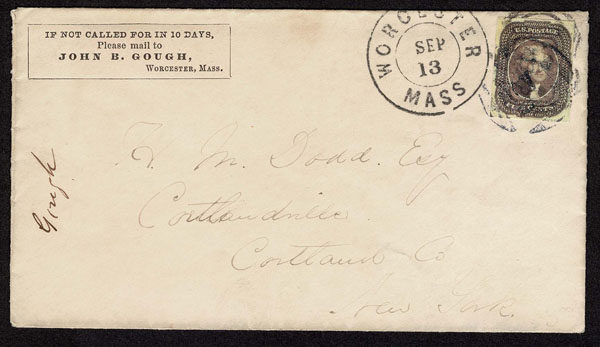 IF NOT CALLED FOR IN 10 DAYS,
Please mail to
JOHN B. GOUGH,
WORCESTER, MASS.
WORCESTER
SEP
13
MASS
U.S. POSTAGE
Gough
H. M. Dodd. Esq
Cortlandville
Cortland Co
New York.